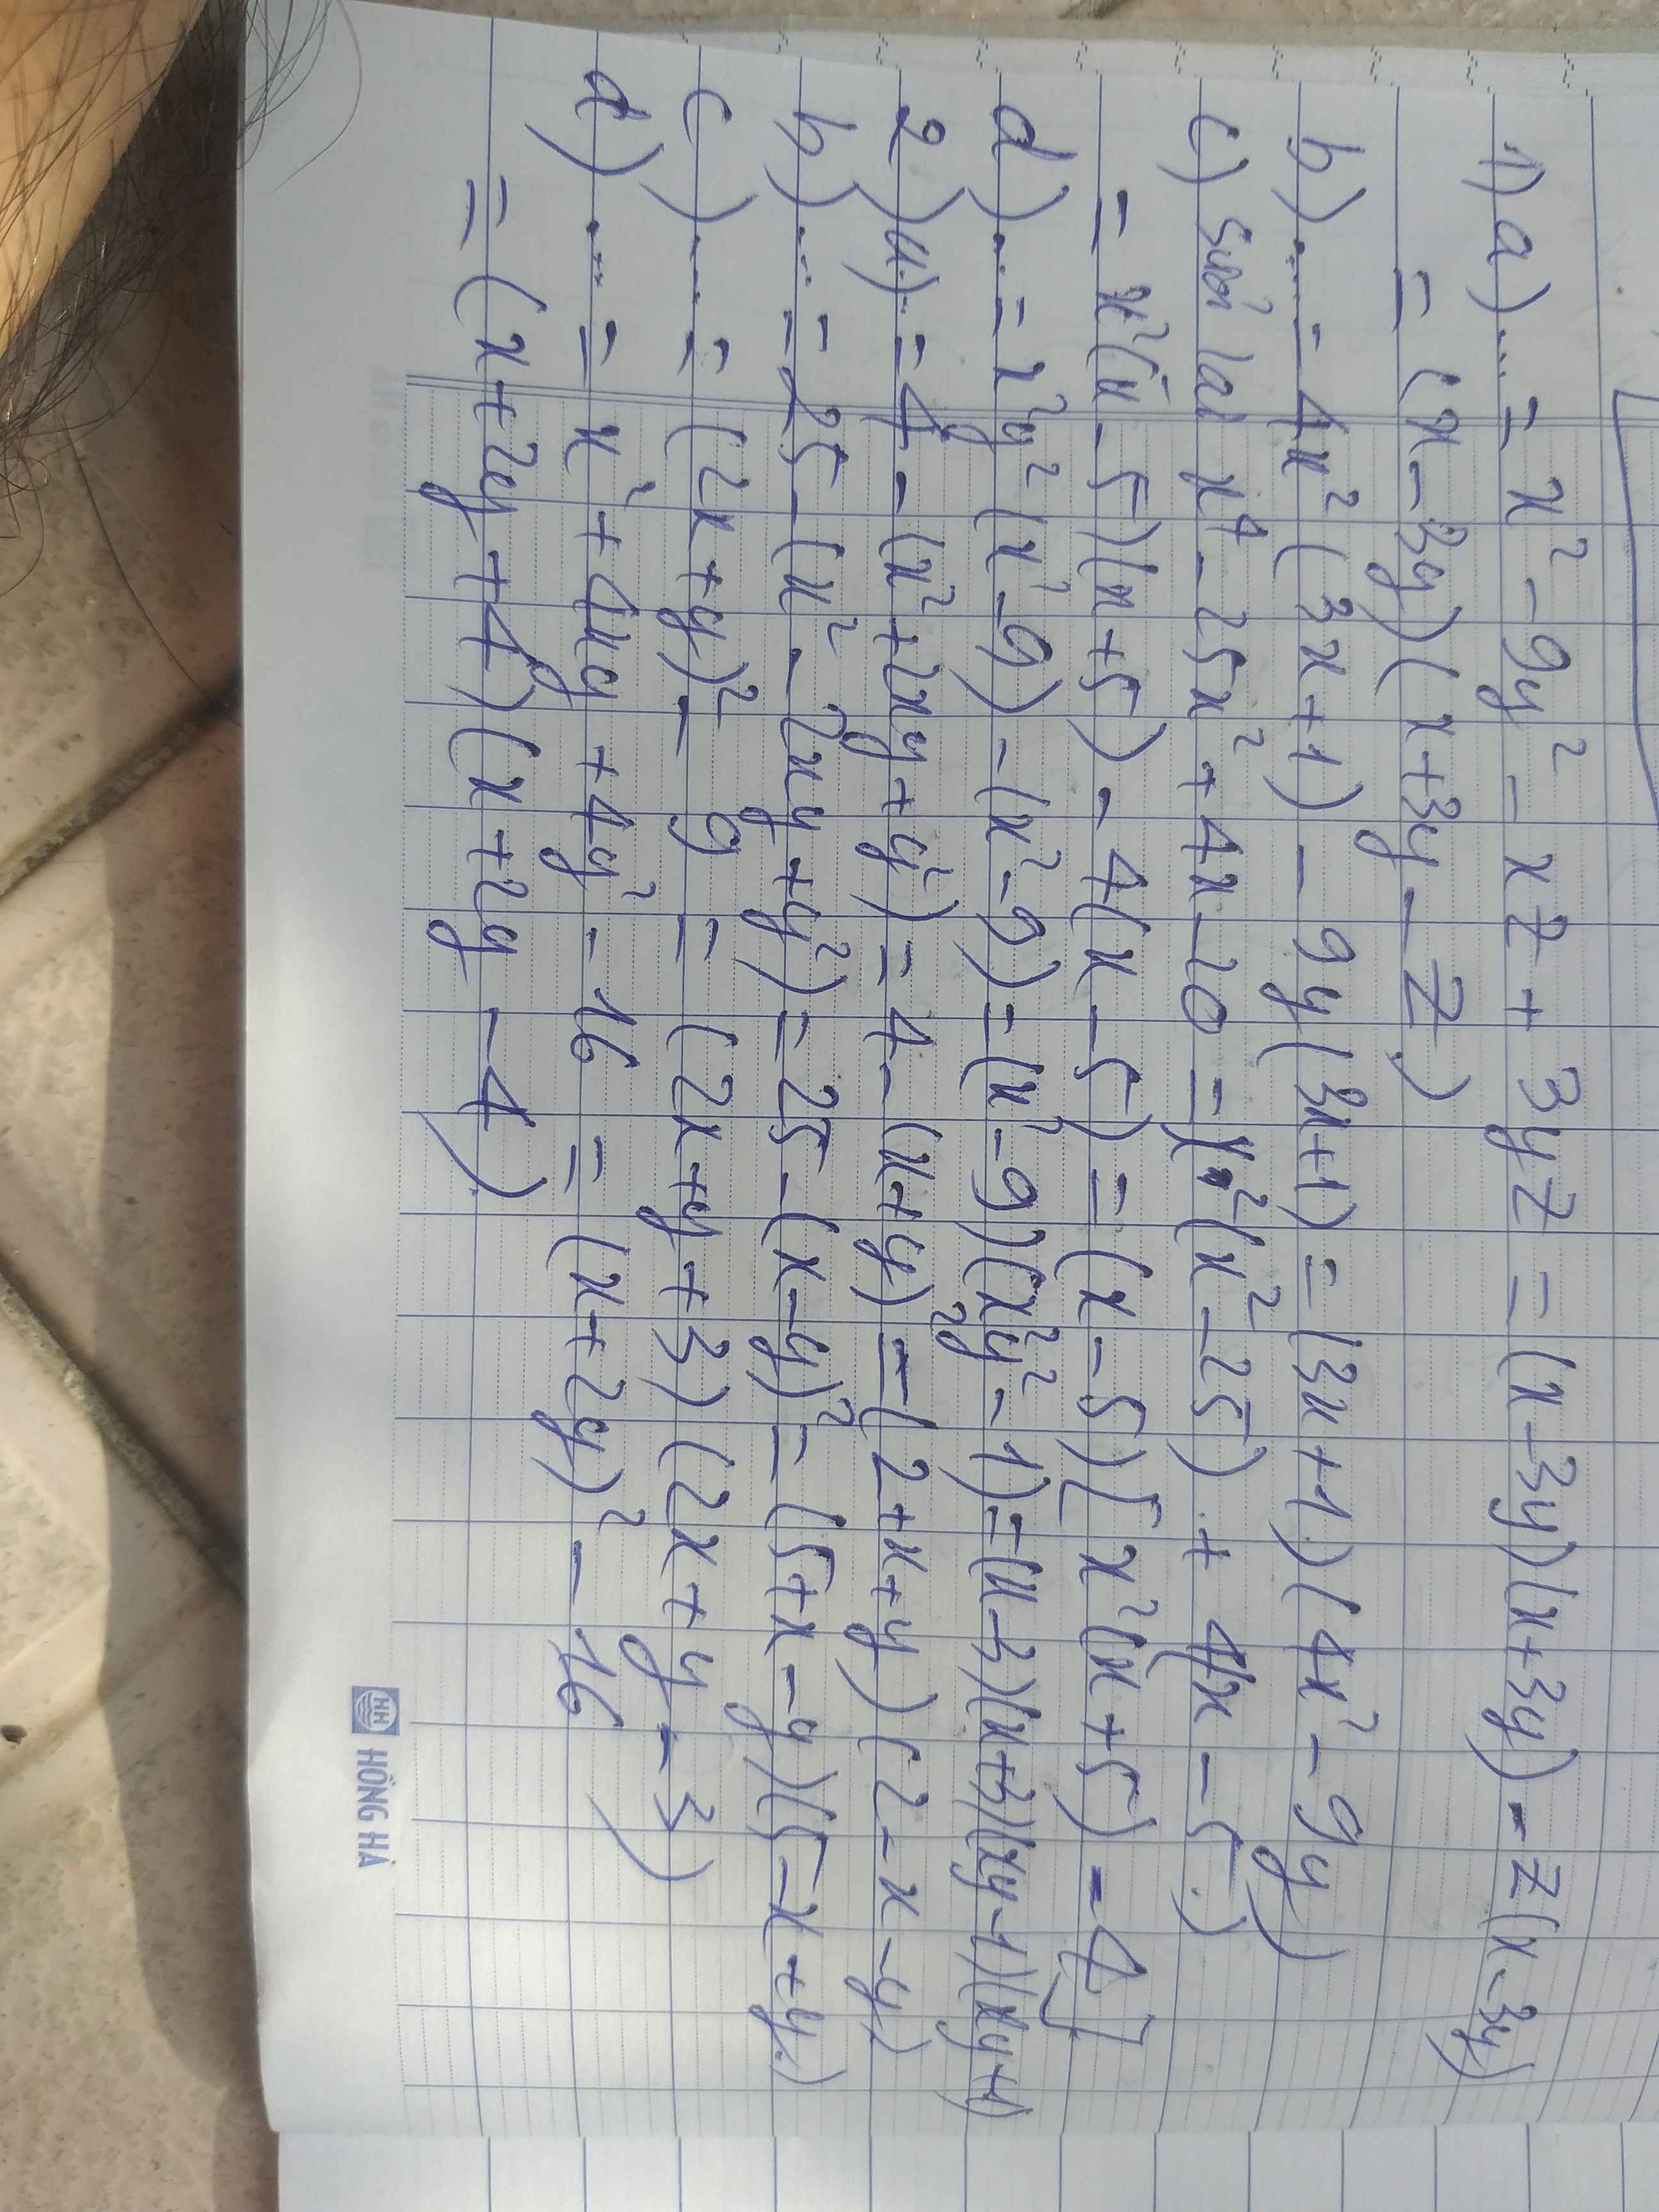 1) a) ... = x² - 9y² - xz + 3yz = (x - 3y)(x + 3y) - z(x - 3y)
= (x - 3y)(x + 3y - z)
b) ... = 4x²(3x + 1) - 9y(3x + 1) = (3x + 1)(4x² - 9y)
c) Sửa lại x⁴ - 25x² + 4x - 20 = x²(x² - 25) + 4(x - 5)
= x²(x - 5)(x + 5) - 4(x - 5) = (x - 5)[x²(x + 5) - 4]
d) ... = x²y²(x² - 9) - (x² - 9) = (x² - 9)(x²y² - 1) = (x - 3)(x + 3)(xy - 1)(xy + 1)
2) a) ... = 4 - (x² + 2xy + y²) = 4 - (x + y)² = (2 + x + y)(2 - x - y)
b) ... = 25 - (x² - 2xy + y²) = 25 - (x - y)² = (5 + x - y)(5 - x + y)
c) ... = (2x + y)² - 9 = (2x + y + 3)(2x + y - 3)
d) ... = x² + 4xy + 4y² - 16 = (x + 2y)² - 16
= (x + 2y + 4)(x + 2y - 4)
HH HỒNG HÀ